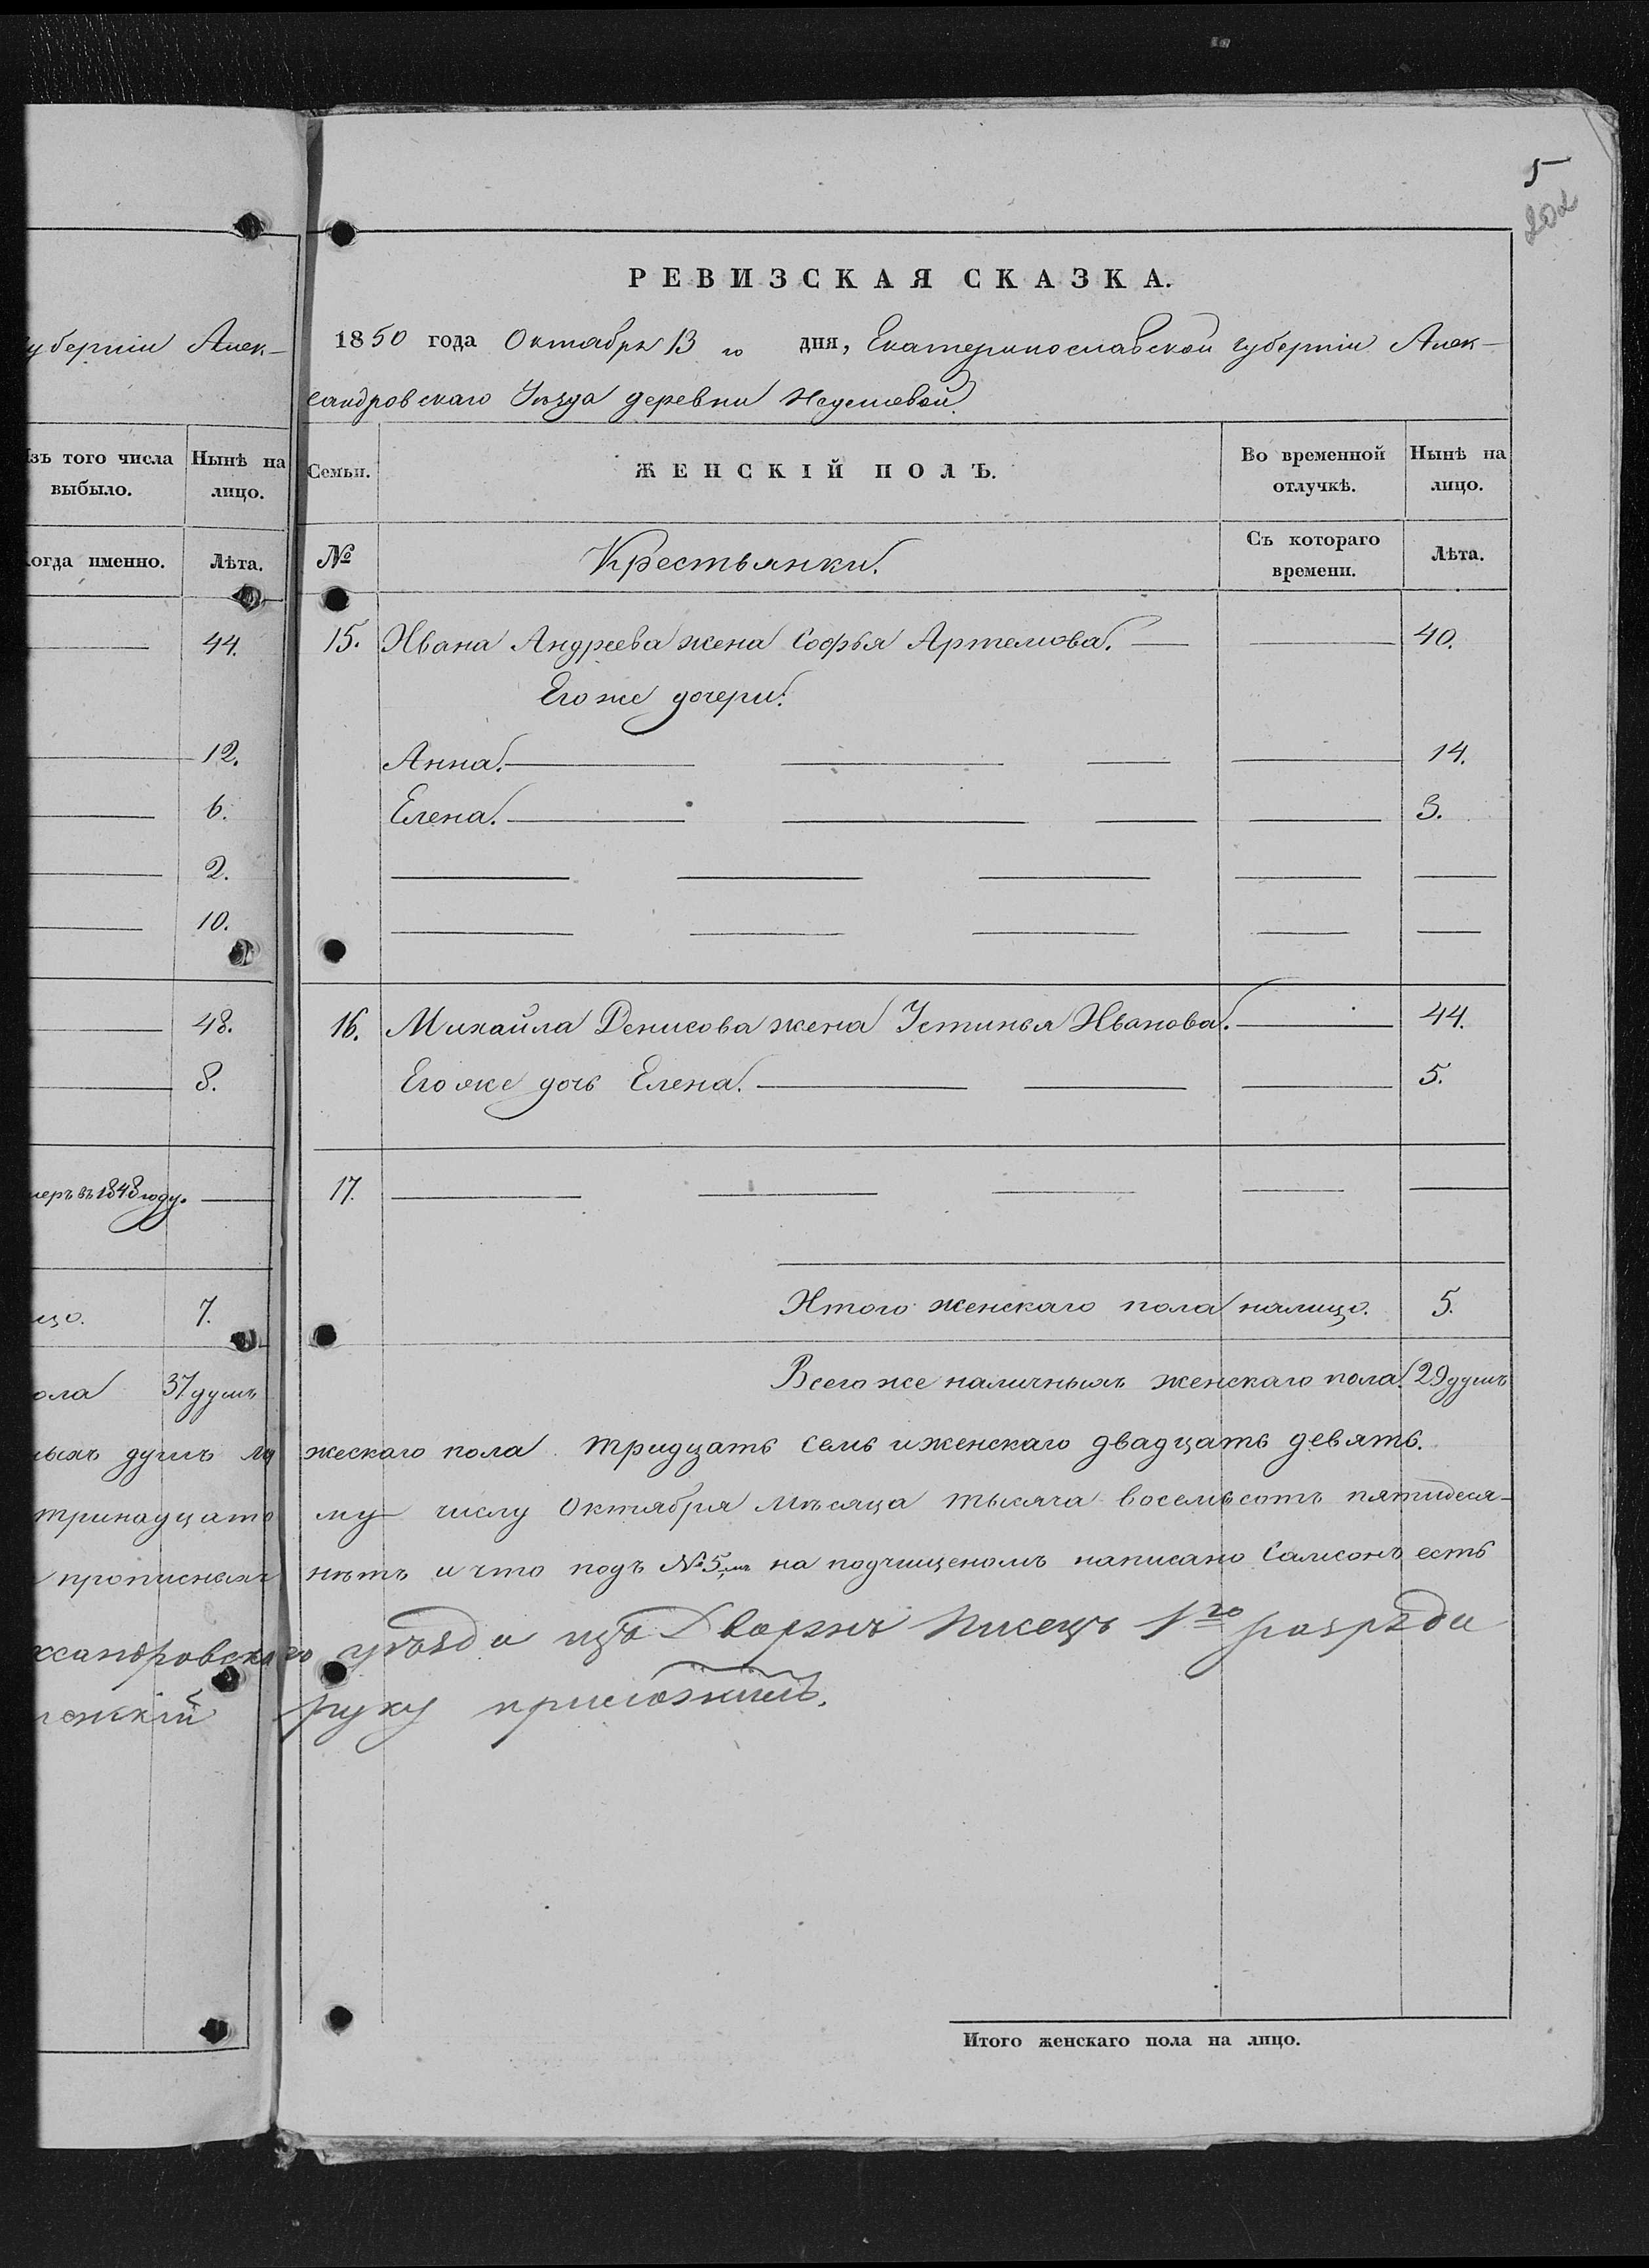 5
202
РЕВИЗСКАЯ СКАЗКА.
уберніи Алек-
1850 года Октября 13 го дня, Екатеринославской губерніи Алек-
сандровскаго Уѣзда деревни
зъ того числа выбыло.
Нынѣ на лицо.
Семьи.
ЖЕНСКІЙ ПОЛЪ.
Во временной отлучкѣ.
Нынѣ на лицо.
огда именно.
Лѣта.
№
Крестьянки.
Съ котораго времени.
Лѣта.
44.
15. Ивана Андреева жена Софья Артемова. 40.
Его же дочери:
12.
Анна. 14.
6.
Елена. 3.
2.
10.
48.
16. Михайла Денисова жена Устинья Иванова. 44.
8.
Его же дочь Елена. 5.
меръ въ 1848 году.
17.
цо. 7.
Итого женскаго пола налицо. 5.
ола 37 душъ
Всего же наличныхъ женскаго пола. 29 душъ
ныхъ душъ му
жескаго пола тридцать семь и женскаго двадцать девять.
тринадцато
му числу Октября мѣсяца тысяча восемьсотъ пятидеся-
прописныхъ
нѣтъ и что подъ №5мъ на подчищеномъ написано Самсонъ есть
ксандровскаго уѣзда изъ Дворянъ писецъ 1го разряда
скій руку приложилъ.
Итого женскаго пола на лицо.